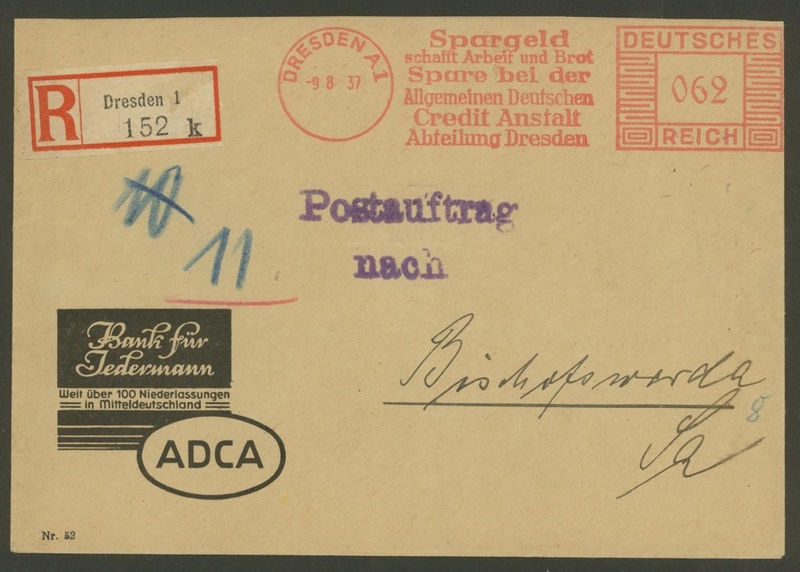 DRESDEN A1
-9 8 37
Spargeld
schafft Arbeit und Brot
Spare bei der
Allgemeinen Deutschen
Credit Anstalt
Abteilung Dresden
DEUTSCHES
062
REICH
R
Dresden 1
152 k
10
11
Postauftrag
nach
Bischofswerda
Sa
8
Bank für
Jedermann
Weit über 100 Niederlassungen
in Mitteldeutschland
ADCA
Nr. 52